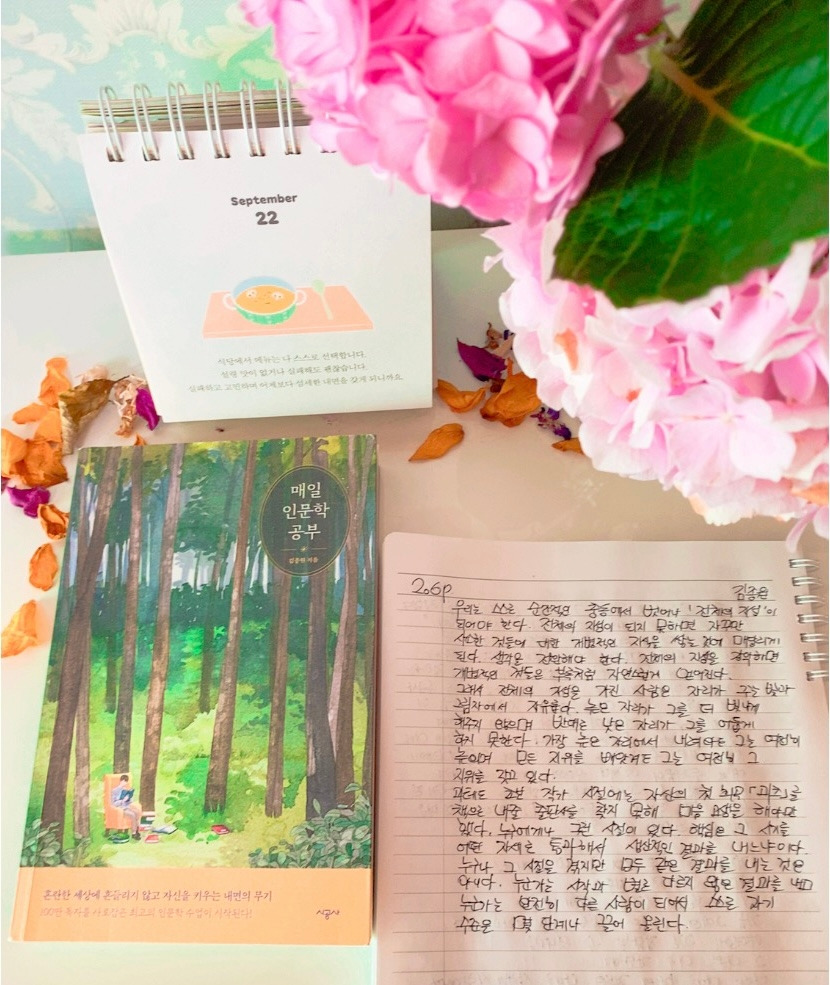 September
22
식당에서 메뉴는 나 스스로 선택합니다.
설령 맛이 없거나 실패해도 괜찮습니다.
실패하고 고민하며 어제보다 섬세한 내면을 갖게 되니까요.
매일
인문학
공부
김종원 지음
혼란한 세상에 흔들리지 않고 자신을 키우는 내면의 무기
100만 독자를 사로잡은 최고의 인문학 수업이 시작된다!
시공사
206p
김종원
우리는 스스로 순간적인 충동에서 벗어나 '전체의 지성'이
되어야 한다. 전체의 지성이 되지 못하면 자꾸만
사소한 것들에 대한 개별적인 지식을 쌓는 것에 매달리게
된다. 생각은 정확해야 한다. 전체의 지성을 장악하면
개별적인 것들은 부록처럼 자연스럽게 얻어진다.
그래서 전체의 지성을 가진 사람은 자리가 주는 빛과
그림자에서 자유롭다. 높은 자리가 그를 더 빛나게
해주지 않으며 반대로 낮은 자리가 그를 어둡게
하지 못한다. 가장 높은 자리에서 내려와도 그는 여전히
높으며 모든 지위를 빼앗겨도 그는 여전히 그
지위를 갖고 있다.
괴테도 초보 작가 시절에는 자신의 첫 희곡 「괴츠」를
책으로 내줄 출판사를 찾지 못해 마음 고생을 해야만
했다. 누구에게나 그런 시절이 있다. 핵심은 그 시기를
어떤 자세로 통과해서 생산적인 결과를 내느냐이다.
누구나 그 시절을 겪지만 모두 같은 결과를 내는 것은
아니다. 누군가는 시작과 별로 다르지 않은 결과를 내고
누군가는 완전히 다른 사람이 되어서 스스로 자기
수준을 몇 단계나 끌어 올린다.